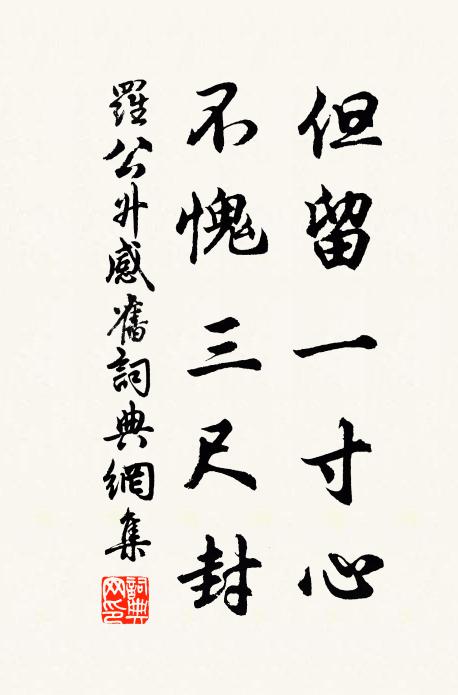 但留一寸心
不愧三尺封
羅公升感舊詞典網集
詞典網印